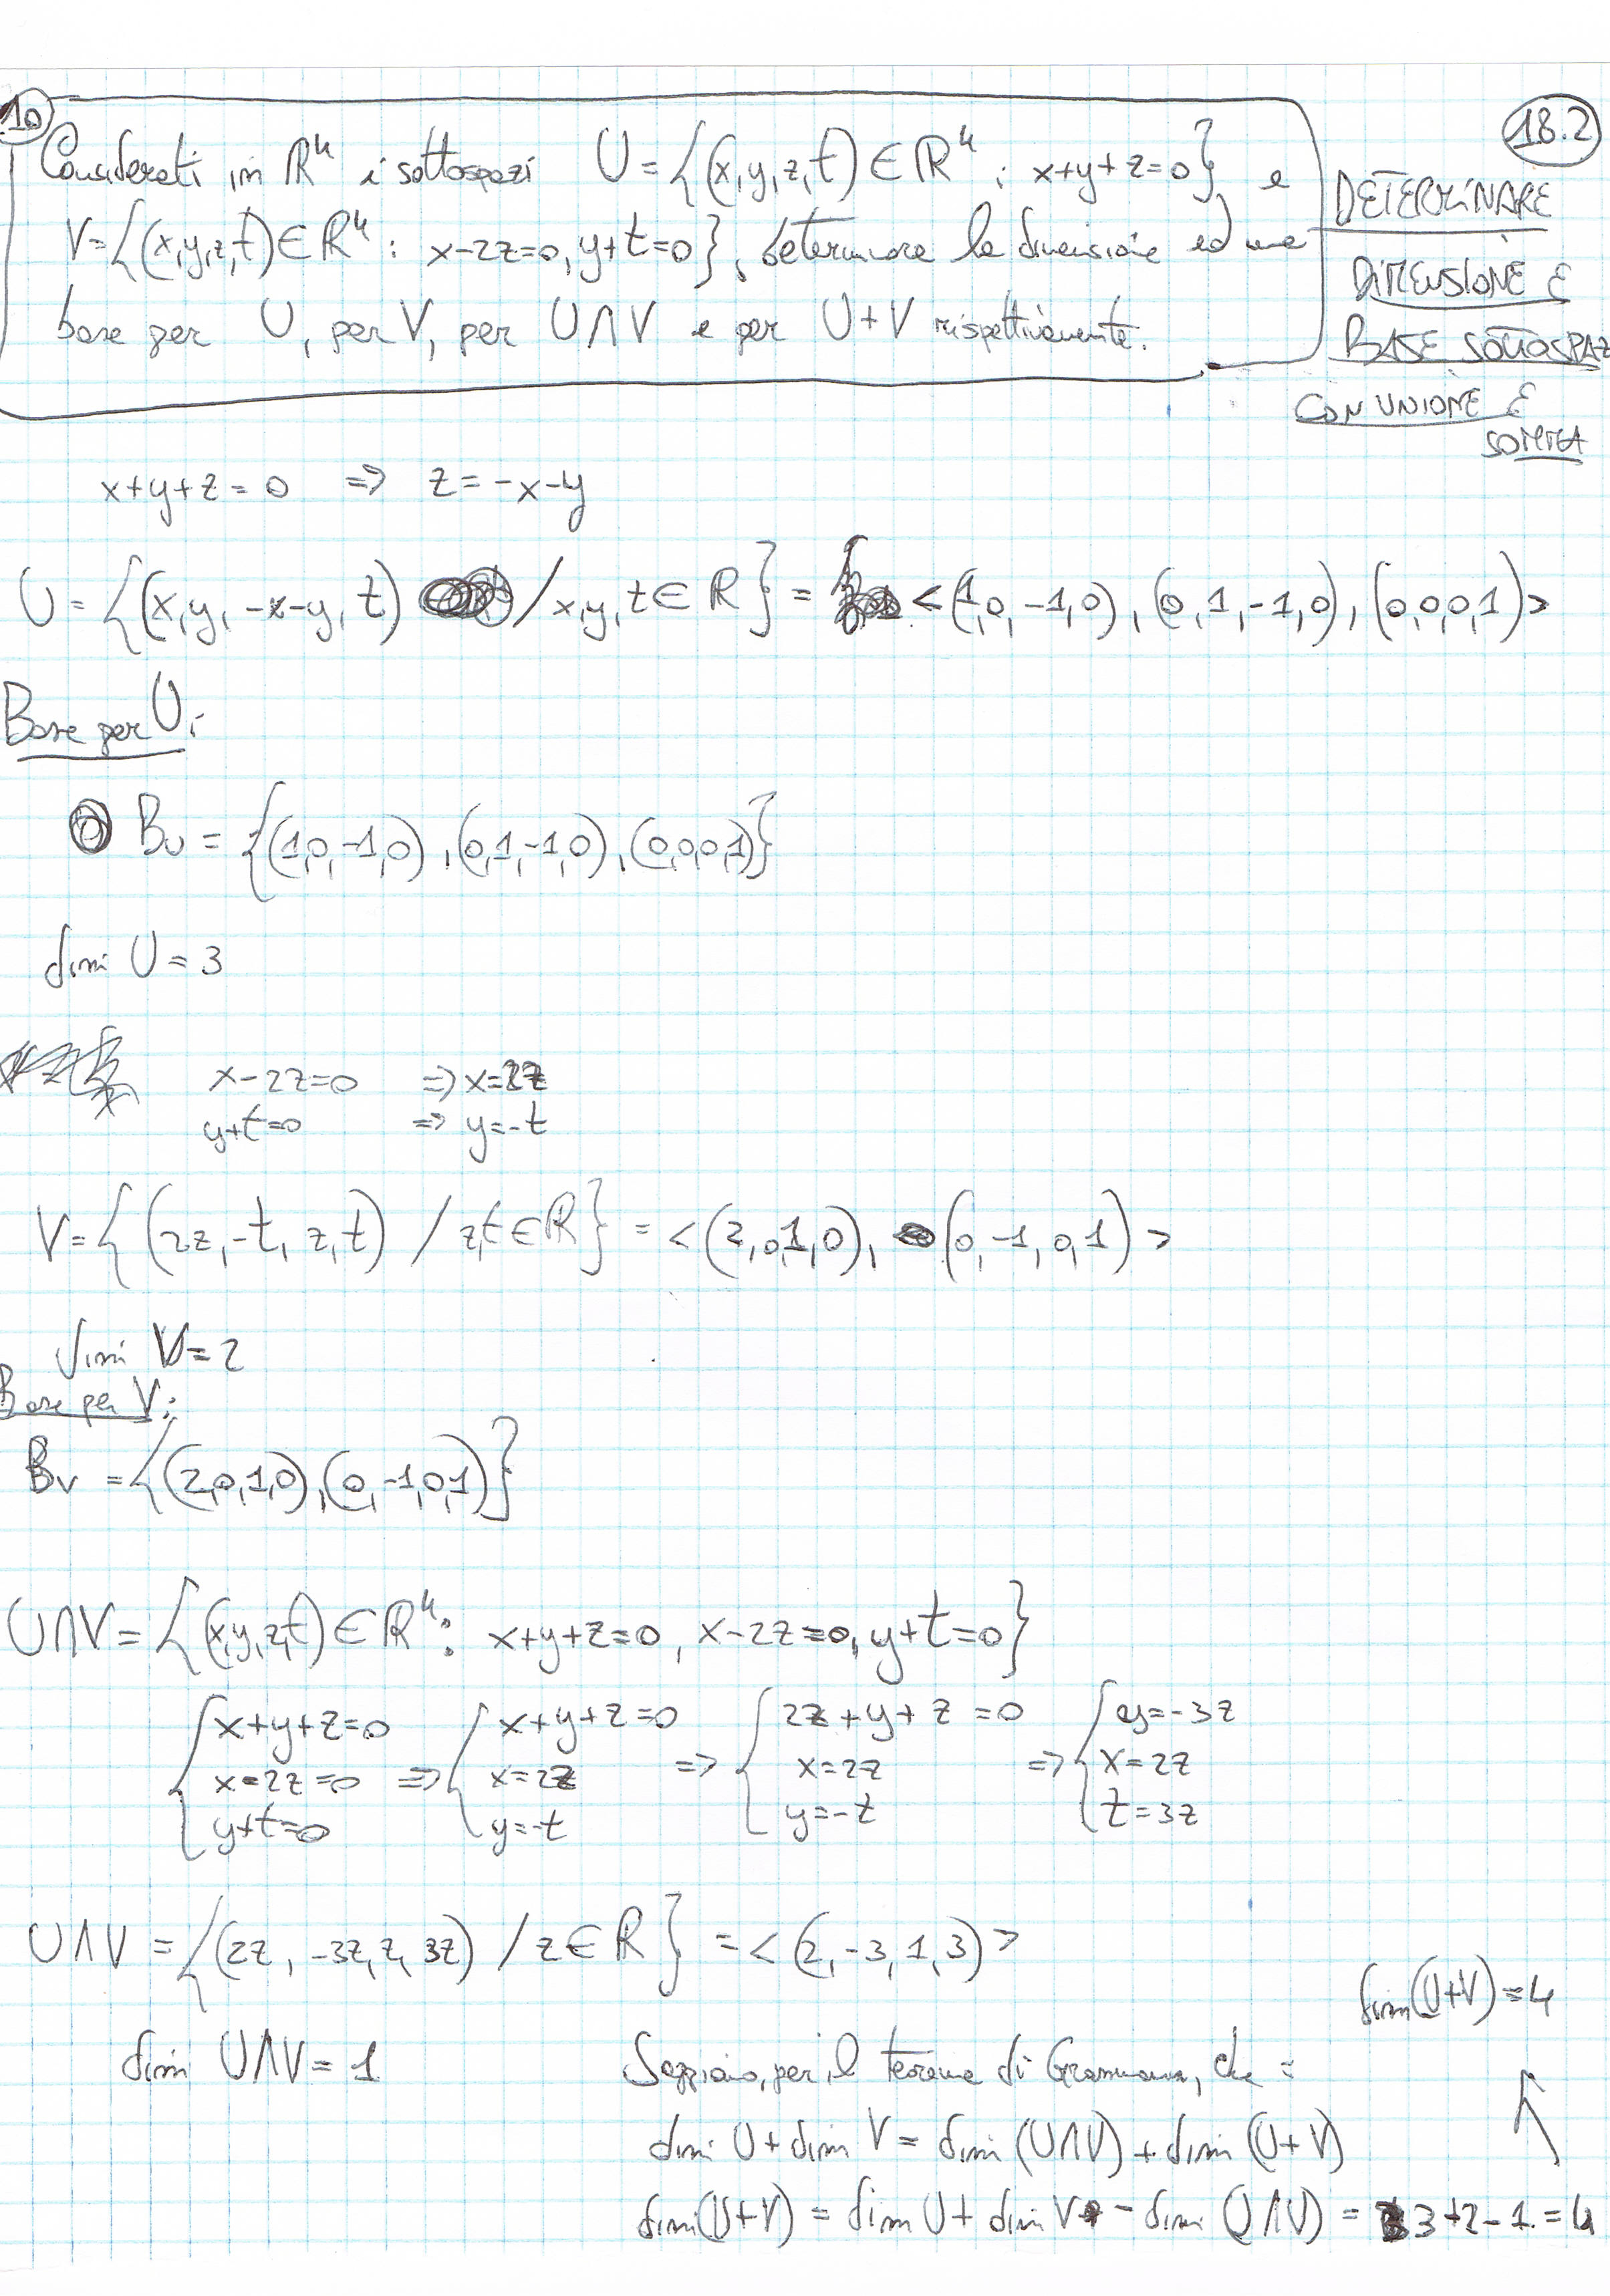 10
18.2
Considerati in R⁴ i sottospazi U = {(x,y,z,t) ∈ R⁴ : x+y+z=0} e
V = {(x,y,z,t) ∈ R⁴ : x-2z=0, y+t=0}, determinare la dimensione ed una
base per U, per V, per U∩V e per U+V rispettivamente.
DETERMINARE
DIMENSIONE E
BASE SOTTOSPAZ
CON UNIONE E
SOMMA
x+y+z=0 ⇒ z=-x-y
U = {(x,y,-x-y,t) / x,y,t ∈ R} = <(1,0,-1,0), (0,1,-1,0), (0,0,0,1)>
Base per U:
B_U = {(1,0,-1,0), (0,1,-1,0), (0,0,0,1)}
dim U = 3
x-2z=0 ⇒ x=2z
y+t=0 ⇒ y=-t
V = {(2z,-t,z,t) / z,t ∈ R} = <(2,0,1,0), (0,-1,0,1)>
dim V = 2
Base per V:
B_V = {(2,0,1,0), (0,-1,0,1)}
U∩V = {(x,y,z,t) ∈ R⁴ : x+y+z=0, x-2z=0, y+t=0}
{x+y+z=0 {x+y+z=0 {2z+y+z=0 {y=-3z
x-2z=0 ⇒ x=2z ⇒ x=2z ⇒ x=2z
y+t=0 y=-t y=-t t=3z
U∩V = {(2z,-3z,z,3z) / z ∈ R} = <(2,-3,1,3)>
dim U∩V = 1
Sappiamo, per il teorema di Grassmann, che :
dim U + dim V = dim (U∩V) + dim (U+V)
dim(U+V) = dim U + dim V - dim (U∩V) = 3+2-1=4
dim(U+V)=4